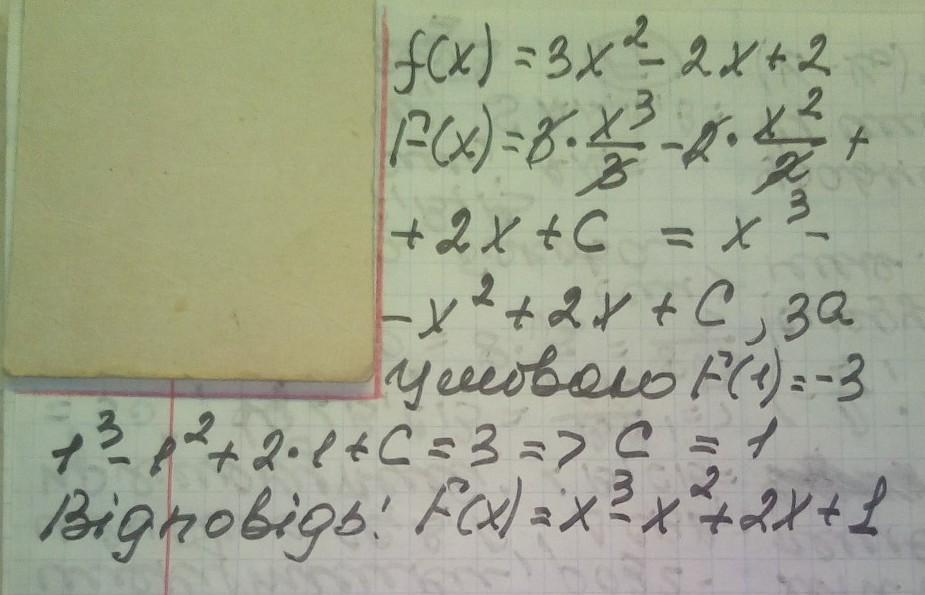 f(x) = 3x² - 2x + 2
F(x) = 3 · x³/3 - 2 · x²/2 +
+ 2x + C = x³ -
- x² + 2x + C, за
умовою F(1) = -3
1³ - 1² + 2·1 + C = 3 => C = 1
Відповідь: F(x) = x³ - x² + 2x + 1